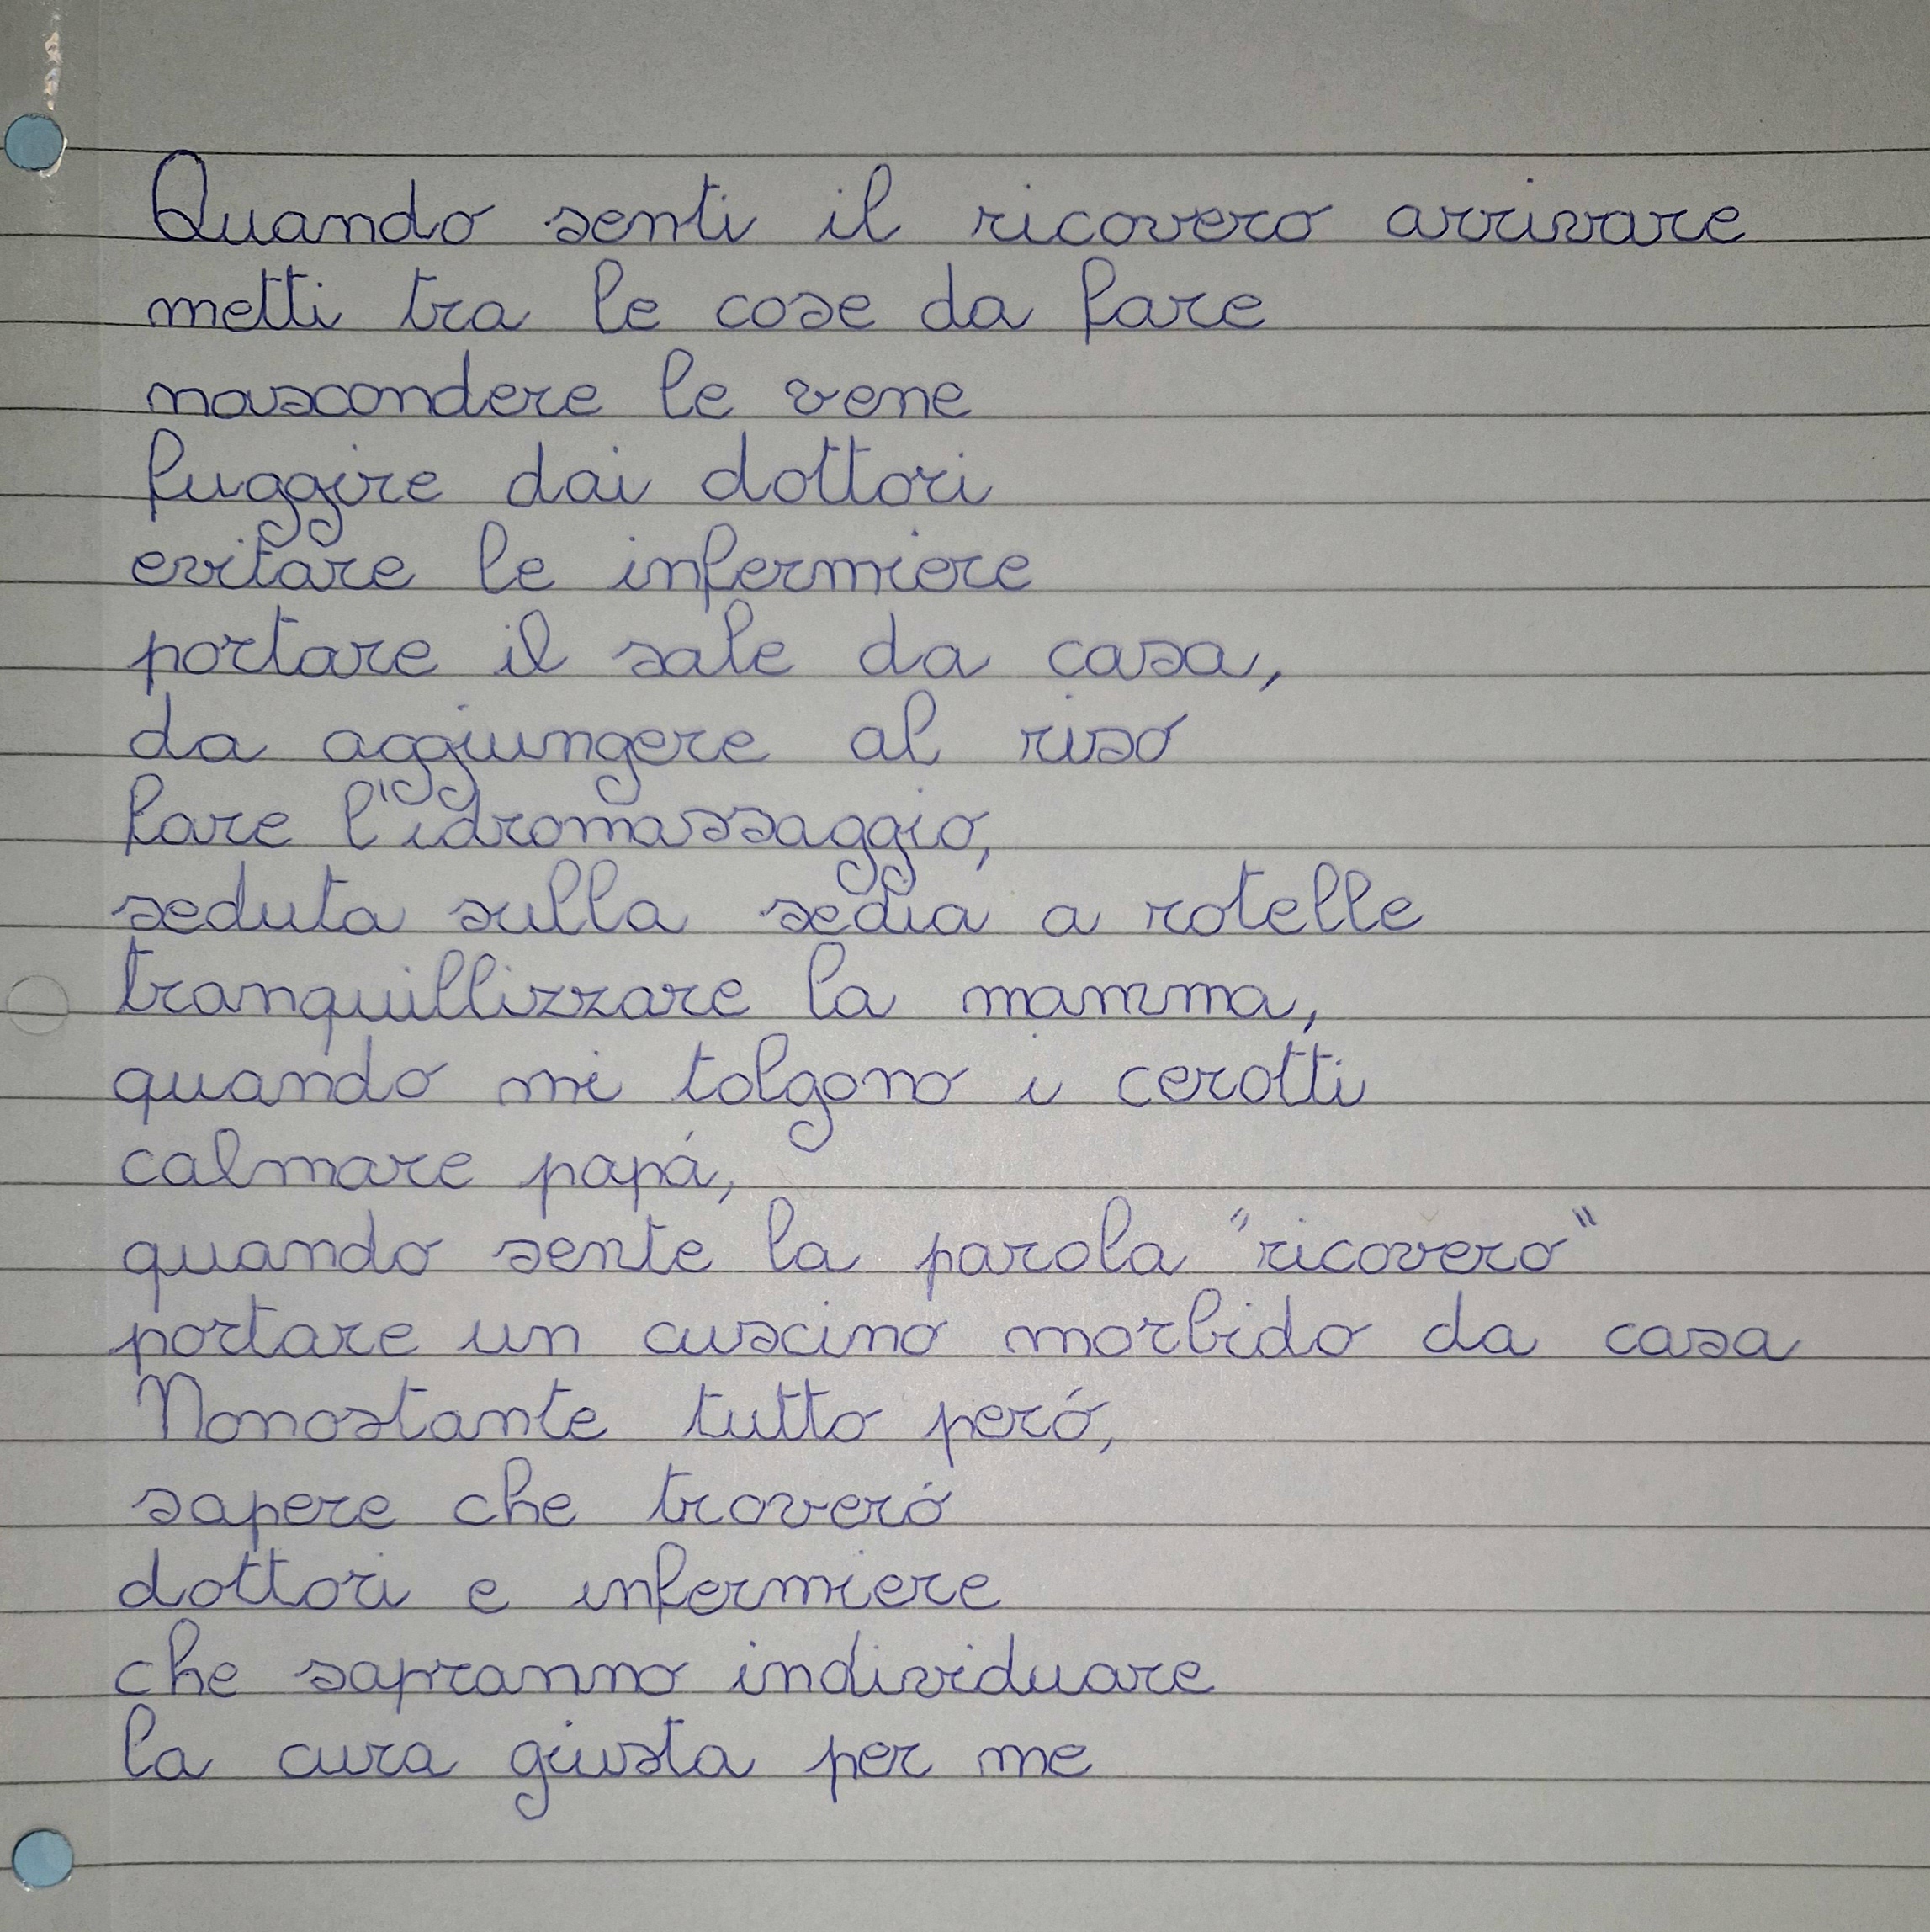 Quando senti il ricovero arrivare
metti tra le cose da fare
nascondere le vene
fuggire dai dottori
evitare le infermiere
portare il sale da casa,
da aggiungere al riso
fare l'idromassaggio,
seduta sulla sedia a rotelle
tranquillizzare la mamma,
quando mi tolgono i cerotti
calmare papá,
quando sente la parola "ricovero"
portare un cuscino morbido da casa
Nonostante tutto peró,
sapere che troveró
dottori e infermiere
che sapranno individuare
la cura giusta per me